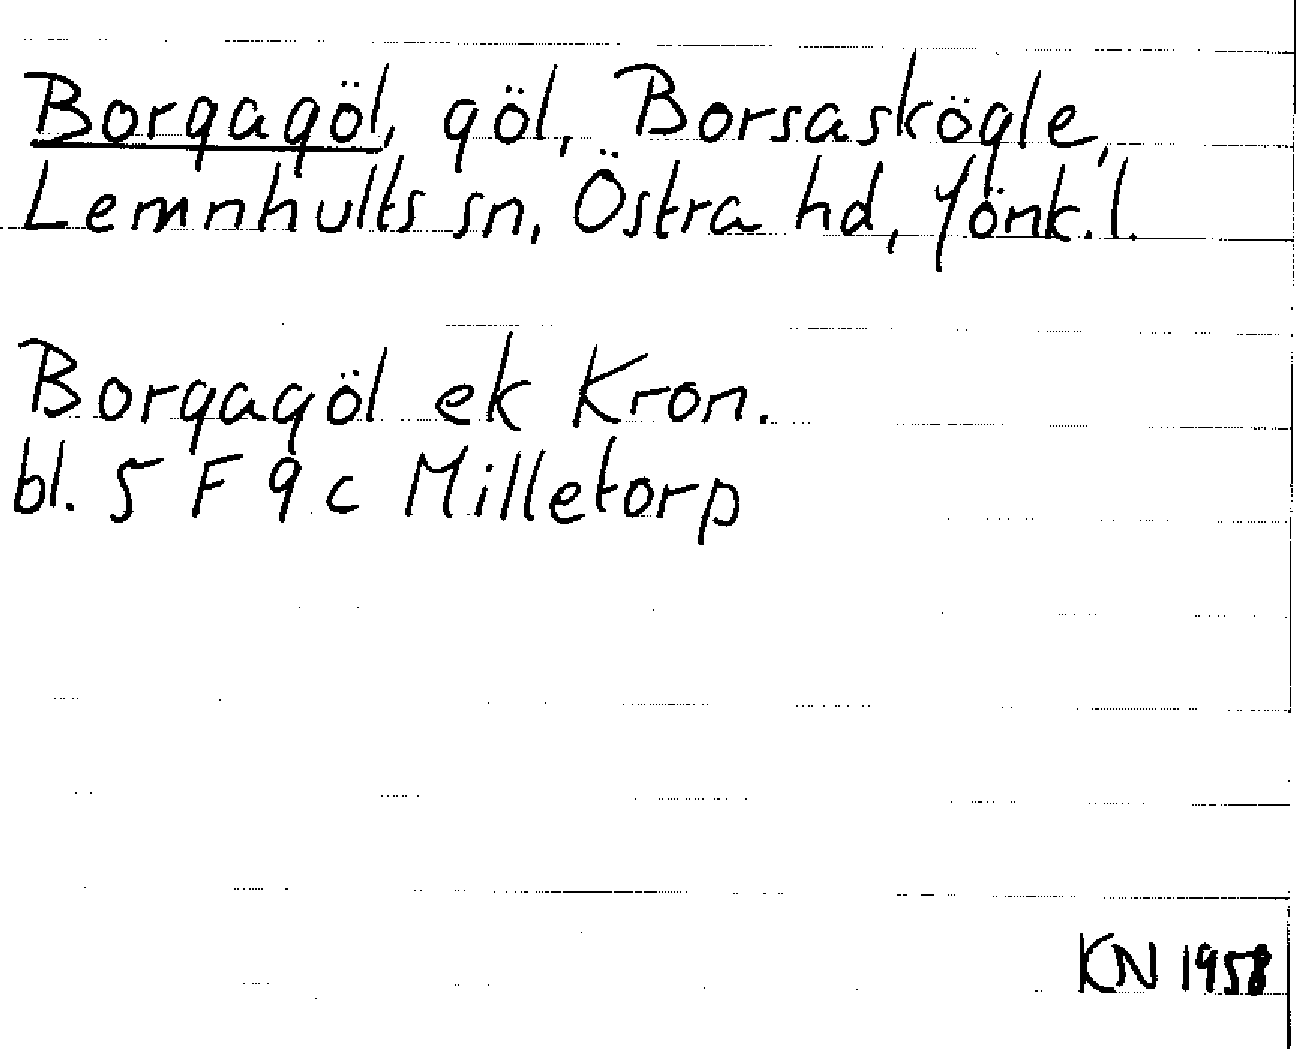 Borgagöl, göl, Borsaskögle,
Lemnhults sn, Östra hd, Jönk. l.
Borgagöl ek Kron.
bl. 5 F 9 c Milletorp
KN 1958